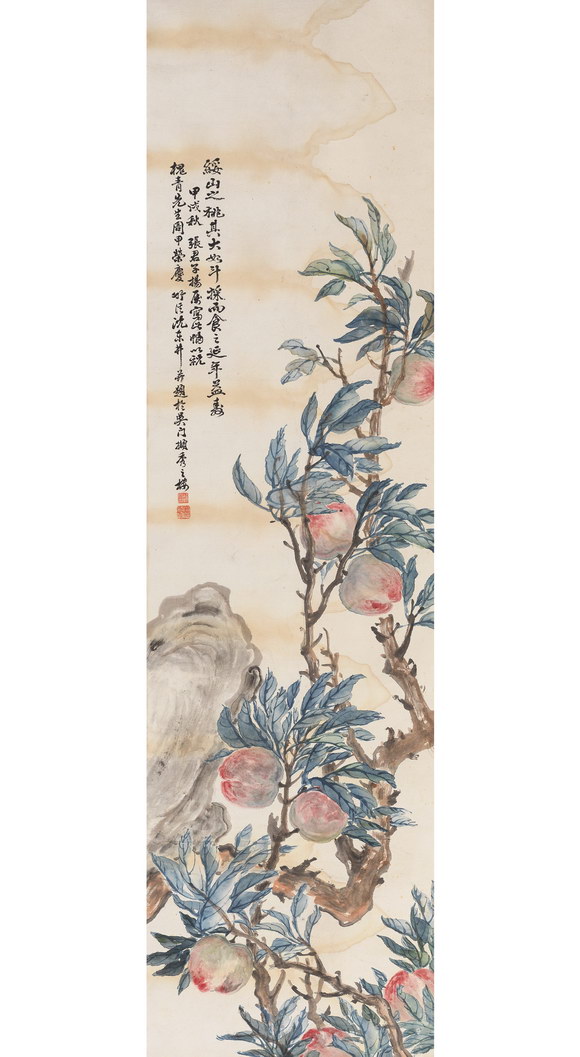 綏山之桃其大如斗採而食之延年益壽
甲戌秋 張君子揚屬寫此幀以祝
槐青先生周甲榮慶 沈東井並題於吳門擷秀之樓